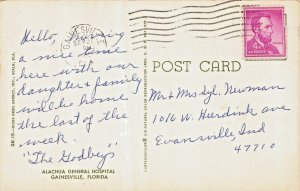 Hello, having
a nice time
here with our
daughter & family
will be home
the last of the
week.
"The Godbeys"
ALACHUA GENERAL HOSPITAL
GAINESVILLE, FLORIDA
POST CARD
Mr & Mrs Syl. Newman
1016 W. Herdink ave
Evansville, Ind
47710